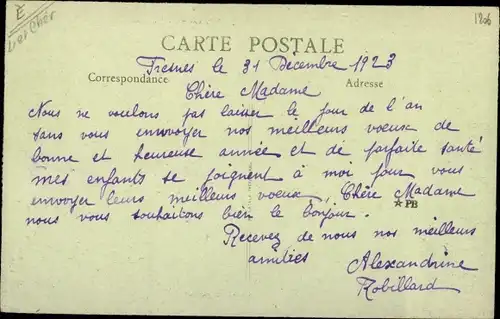 E
Loir et Cher
1206
CARTE POSTALE
Fresnes le 31 Décembre 1923
Correspondance Adresse
Chère Madame
Nous ne voulons pas laisser le jour de l'an
sans vous envoyer nos meilleurs voeux de
bonne et heureuse année et de parfaite santé
mes enfants se joignent à moi pour vous
envoyer leurs meilleurs voeux. Chère Madame
nous vous souhaitons bien le bonjour.
☆PB
Recevez de nous nos meilleurs
amitiés
Alexandrine
Robillard